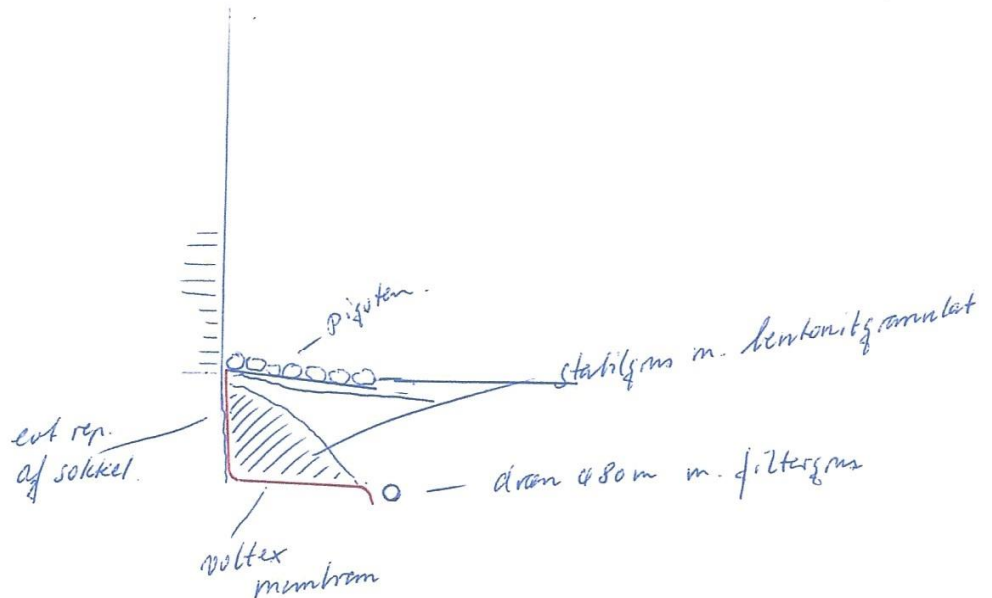 pigsten.
stabilgrus m. bentonitgranulat
evt rep.
af sokkel.
dræn ø80m m. filtergrus
voltex
membran